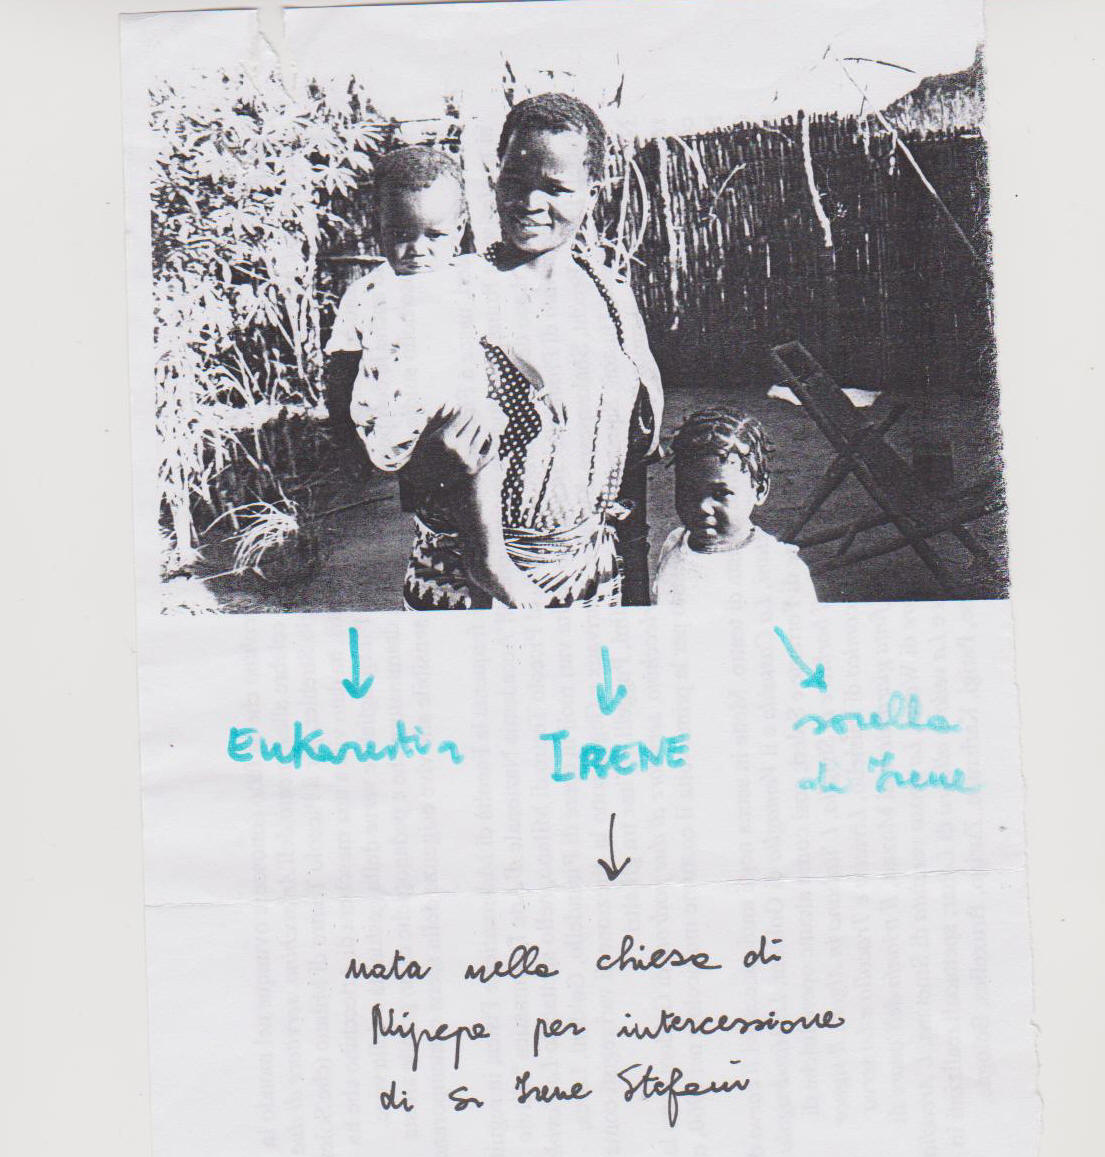 Eukarestia
IRENE
sorella
di Irene
nata nella chiesa di
Nipepe per intercessione
di Sr Irene Stefani